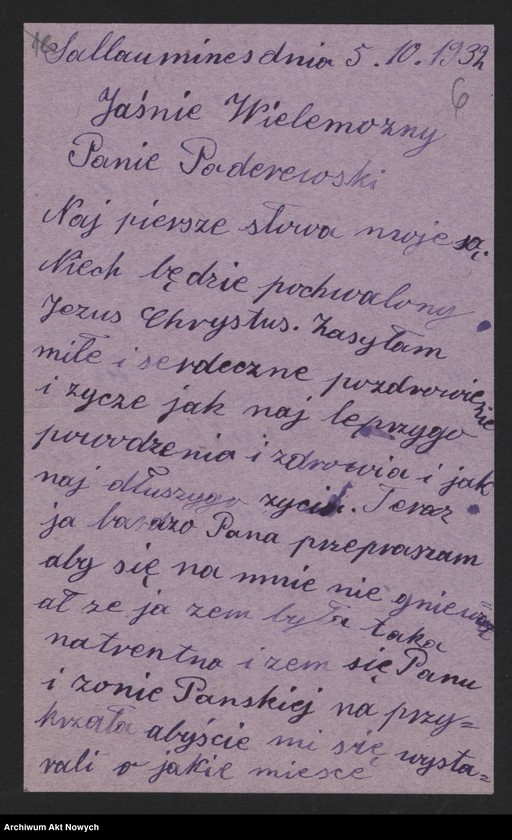 Sallaumines dnia 5.10.1932
6
Jaśnie Wielemozny
Panie Paderewski
Naj piersze słowa moje są.
Niech będzie pochwalony
Jezus Chrystus. Zasyłam
miłe i serdeczne pozdrowienie
i zycze jak naj leprzygo
powodzenia i zdrowia i jak
naj dłuszygo zycia. Teraz
ja bardzo Pana przepraszam
aby się na mnie nie gniew=
ał ze ja zem była taka
natrentna i zem się Panu
i zonie Panskiej na przy=
krzała abyście mi się wysta=
rali o jakie miesce
Archiwum Akt Nowych